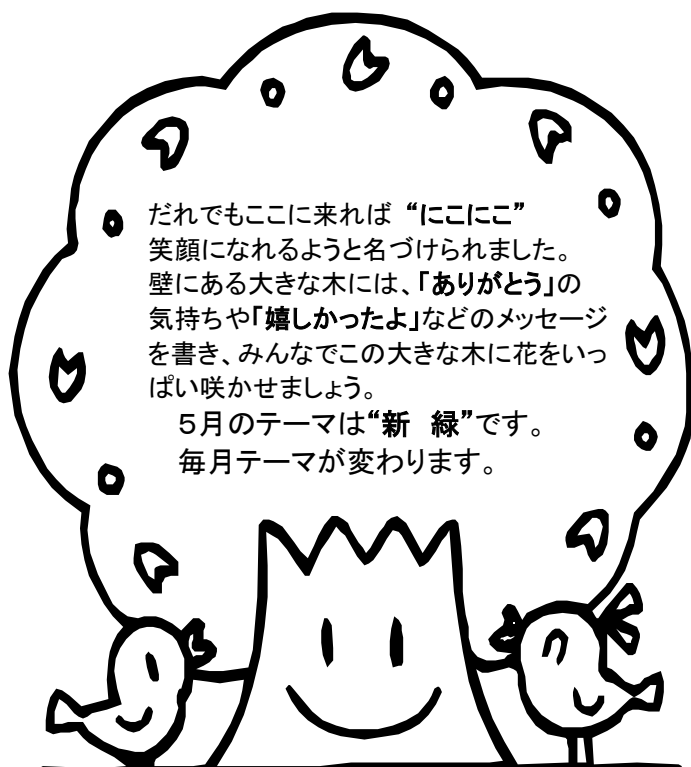 だれでもここに来れば “にこにこ”
笑顔になれるようと名づけられました。
壁にある大きな木には、「ありがとう」の
気持ちや「嬉しかったよ」などのメッセージ
を書き、みんなでこの大きな木に花をいっ
ぱい咲かせましょう。
５月のテーマは“新　緑”です。
毎月テーマが変わります。